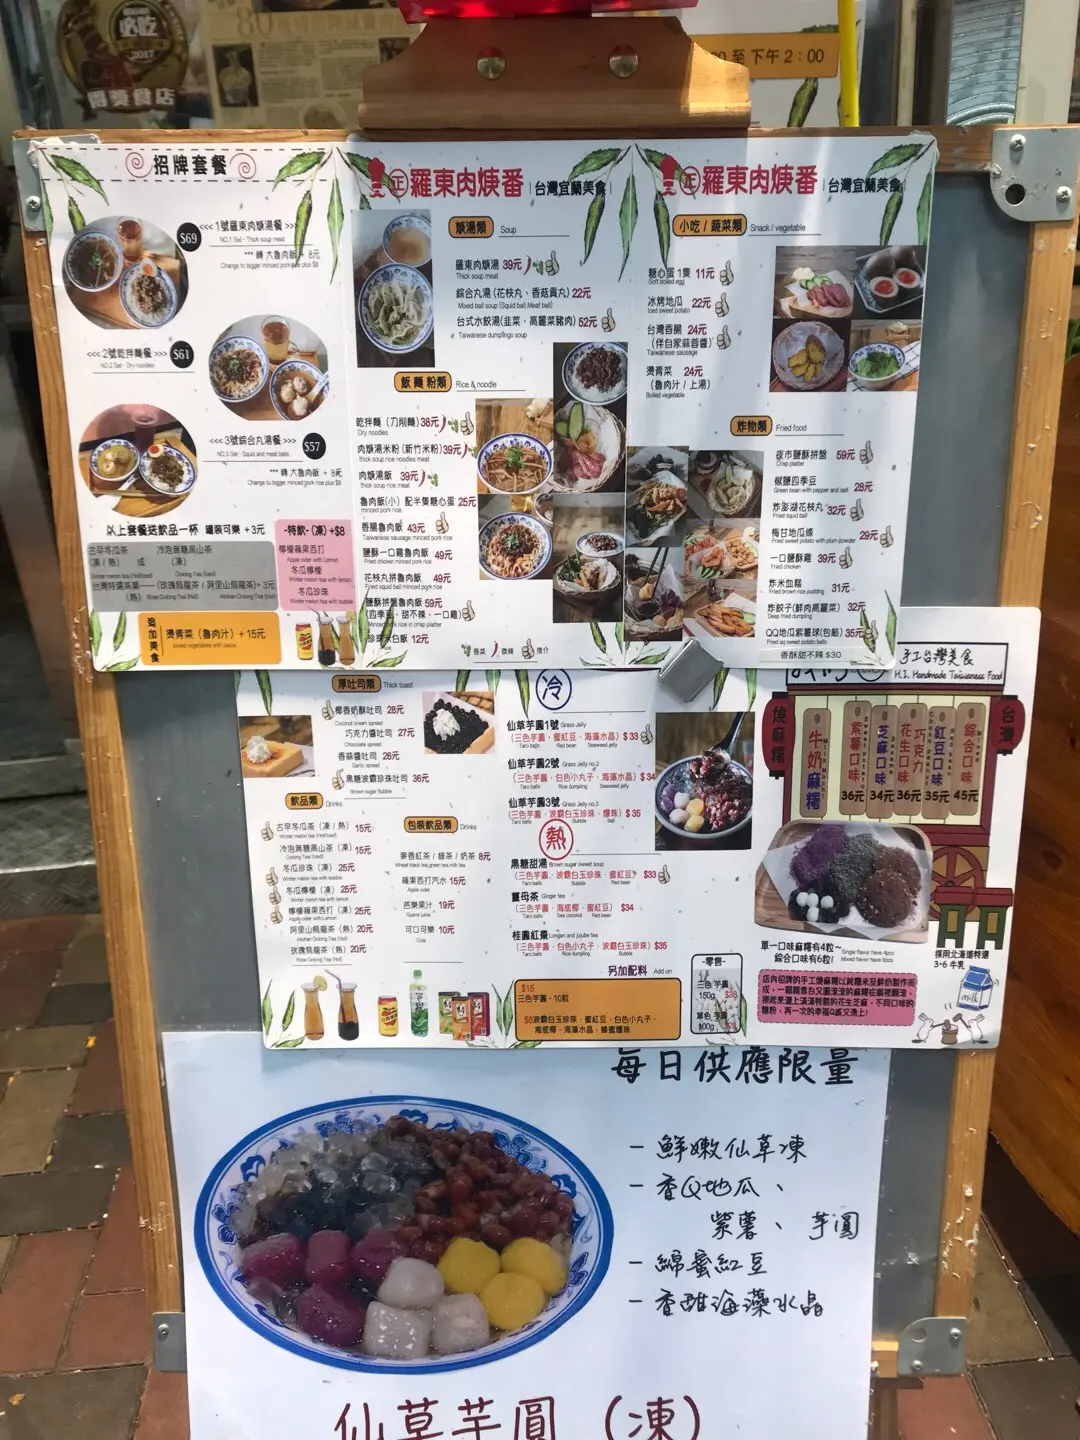 必吃
2017
80
至 下午 2：00
招牌套餐
<<< 1號羅東肉焿湯餐 >>>
NO.1 Set - Thick soup meat
$69
*** 轉 大魯肉飯 + 8元
Change to bigger minced pork rice plus $8
<<< 2號乾拌麵餐 >>>
NO.2 Set - Dry noodles
$61
<<< 3號綜合丸湯餐 >>>
NO.3 Set - Squid and meat balls
$57
*** 轉 大魯肉飯 + 8元
Change to bigger minced pork rice plus $8
以上套餐送飲品一杯 罐裝可樂 +3元
古早冬瓜茶
(凍 / 熱) 或
冷泡無糖高山茶
(凍)
Oolong Tea (Iced)
台灣特選茶葉——(玫瑰烏龍茶 / 阿里山烏龍茶)+3元
(熱) Rose Oolong Tea (Hot) Alishan Oolong Tea (Hot)
-特飲- (凍) +$8
檸檬蘋果西打
Apple cider with Lemon
冬瓜檸檬
Winter melon tea with lemon
冬瓜珍珠
Winter melon tea with bubble
追加美食
燙青菜（魯肉汁）+ 15元
Boiled vegetables with sauce
正 羅東肉焿番 | 台灣宜蘭美食
焿湯類 Soup
羅東肉焿湯 39元
Thick soup meat
綜合丸湯 (花枝丸、香菇貢丸) 22元
Mixed ball soup (Squid ball,Meat ball)
台式水餃湯(韭菜、高麗菜豬肉) 52元
Taiwanese dumplings soup
飯 麵 粉類 Rice & noodle
乾拌麵（刀削麵）38元
Dry noodles
肉焿湯米粉 (新竹米粉) 39元
thick soup rice noodles meat
肉焿湯飯 39元
thick soup rice meat
魯肉飯(小) 配半隻糖心蛋 25元
minced pork rice
香腸魯肉飯 43元
Taiwanese sausage minced pork rice
鹽酥一口雞魯肉飯 49元
Fried chicken minced pork rice
花枝丸拼魯肉飯 49元
Fried squid ball minced pork rice
鹽酥拼盤魯肉飯 59元
(四季豆、甜不辣、一口雞)
minced pork rice in crisp platter
珍珠米白飯 12元
香菜 微辣 推介
正 羅東肉焿番 | 台灣宜蘭美食
小吃 / 蔬菜類 Snack / vegetable
糖心蛋 1隻 11元
Soft boiled egg
冰烤地瓜 22元
Iced sweet potato
台灣香腸 24元
（伴自家蒜蓉醬）
Taiwanese sausage
燙青菜 24元
（魯肉汁 / 上湯）
Boiled vegetable
炸物類 Fried food
夜市鹽酥拼盤 59元
Crisp platter
椒鹽四季豆 28元
Green bean with pepper and salt
炸澎湖花枝丸 32元
Fried squid ball
梅甘地瓜條 29元
Fried sweet potato with plum powder
一口鹽酥雞 39元
Fried chicken
炸米血糕 31元
Fried brown rice pudding
炸餃子(鮮肉高麗菜) 32元
Deep fried dumpling
QQ地瓜紫薯球(包餡) 35元
Fried qq sweet potato balls
香酥甜不辣 $30
厚吐司類 Thick toast
椰香奶酥吐司 28元
Coconut cream spread
巧克力醬吐司 27元
Chocolate spread
香蒜醬吐司 26元
Garlic spread
黑糖波霸珍珠吐司 36元
Brown sugar Bubble
飲品類 Drinks
古早冬瓜茶（凍 / 熱）15元
Winter melon tea (Hot/Iced)
冷泡無糖高山茶（凍）15元
Oolong Tea (Iced)
冬瓜珍珠（凍）25元
Winter melon tea with bubble
冬瓜檸檬（凍）25元
Winter melon tea with lemon
檸檬蘋果西打（凍）25元
Apple cider with Lemon
阿里山烏龍茶（熱）20元
Alishan Oolong Tea (Hot)
玫瑰烏龍茶（熱）20元
Rose Oolong Tea (Hot)
包裝飲品類 Drinks
麥香紅茶 / 綠茶 / 奶茶 8元
Wheat black tea,green tea,milk tea
蘋果西打汽水 15元
Apple cider
芭樂果汁 19元
Guava juice
可口可樂 10元
Cola
冷
仙草芋圓1號 Grass Jelly
（三色芋圓、蜜紅豆、海藻水晶）$ 33
Taro balls Red bean Seaweed jelly
仙草芋圓2號 Grass Jelly no.2
（三色芋圓、白色小丸子、海藻水晶）$ 34
Taro balls Rice dumpling Seaweed jelly
仙草芋圓3號 Grass Jelly no.3
（三色芋圓、波霸白玉珍珠、爆珠）$ 35
Taro balls Bubble ball
熱
黑糖甜湯 Brown sugar sweet soup
（三色芋圓、波霸白玉珍珠、蜜紅豆）$33
Taro balls Bubble Red bean
薑母茶 Ginger tea
（三色芋圓、海底椰、蜜紅豆）$34
Taro balls Sea coconut Red bean
桂圓紅棗 Longan and jujube tea
（三色芋圓、白色小丸子、波霸白玉珍珠）$35
Taro balls Rice dumpling Bubble
另加配料 Add on
$16
三色芋圓 - 10粒
$8波霸白玉珍珠、蜜紅豆、白色小丸子、
海底椰、海藻水晶、蜂蜜爆珠
-零售-
三色 芋圓
150g
單色 芋圓
手工台灣美食
H.I. Handmade Taiwanese Food
燒麻糬
台灣
牛奶麻糬
紫薯口味 36元
芝麻口味 34元
巧克力花生口味 36元
紅豆口味 35元
綜合口味 45元
單一口味麻糬有4粒~ Single flavor have 4pcs
綜合口味有6粒! Mixed flavor have 6pcs
採用北海道特選
3·6 牛乳
milk
店內招牌的手工燒麻糬以純糯米及鮮奶製作而
成，一顆顆雪白又圓滾滾的麻糬在鍋裡翻滾，
撈起來灑上滿滿特製的花生芝麻，不同口味的
糖粉，再一次的幸福Q感又湧上!
每日供應限量
- 鮮嫩仙草凍
- 香Q地瓜、
紫薯、芋圓
- 綿蜜紅豆
- 香甜海藻水晶
仙草芋圓（凍）